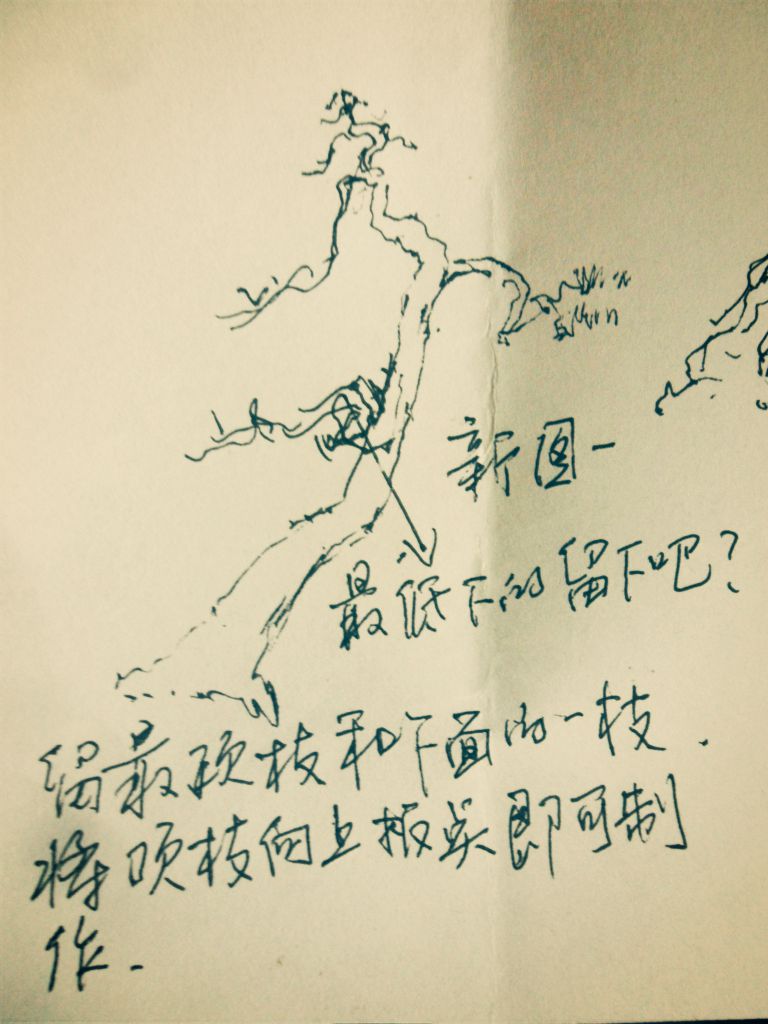 新图一
最低下的留下吧?
留最顶枝和下面的一枝.
将顶枝向上扳点即可制
作.